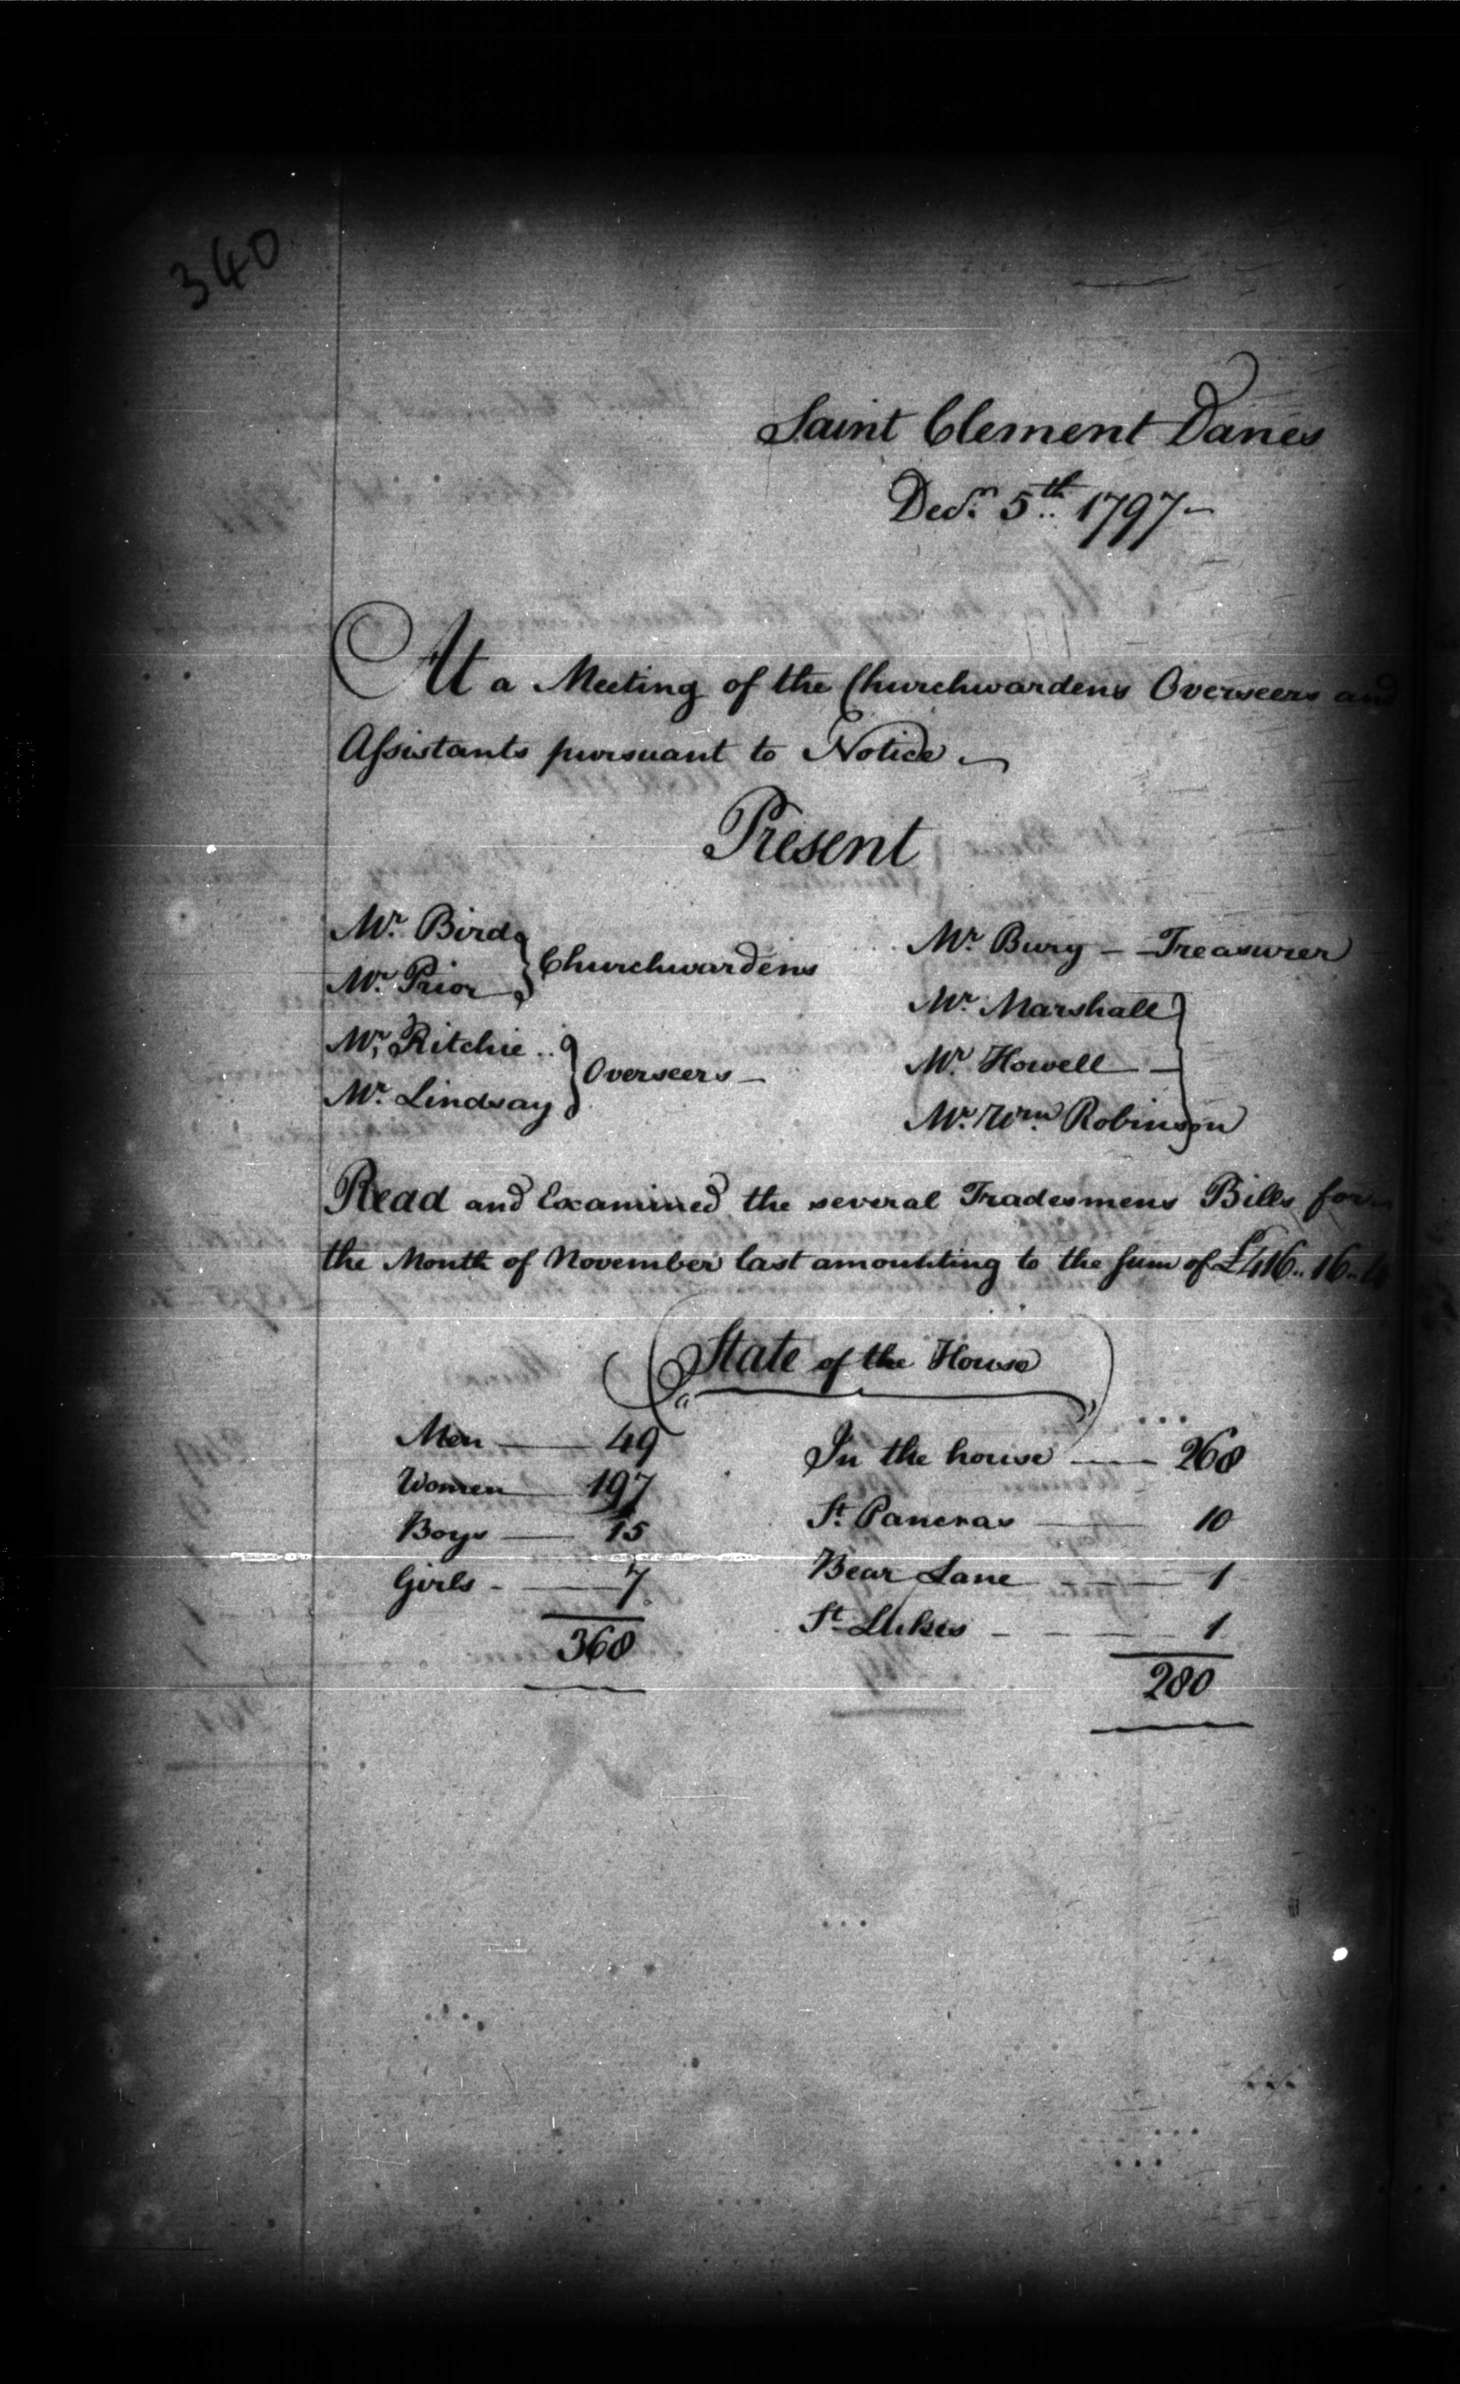 340
Saint Clement Danes
Decr. 5th. 1797
At a Meeting of the Churchwardens Overseers and
Assistants pursuant to Notice
Present
Mr. Bird
Mr. Prior
Churchwardens
Mr. Ritchie
Mr. Lindsay
Overseers
Mr. Bury - Treasurer
Mr. Marshall
Mr. Howell
Mr. Wm. Robinson
Read and Examined the several Tradesmens Bills for
the Month of November last amounting to the Sum of £416..16..4
State of the House
Men — 49
Women — 197
Boys — 15
Girls — 7
368
In the house — 268
St. Pancras — 10
Bear Lane — 1
St. Lukes — 1
280